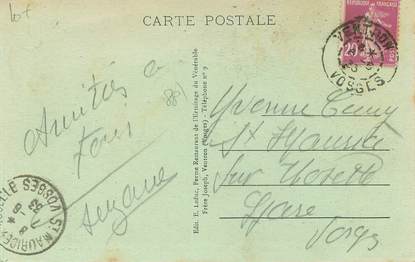 CARTE POSTALE
REPUBLIQUE FRANÇAISE
20
VENTRON
VOSGES
Amitiés à
tous
Suzanne
Yvonne
St Maurice
sur Moselle
Gare
Vosges
Edit. E. Leduc, Ferme Restaurant de l'Ermitage du Vénérable
Frère Joseph, Ventron (Vosges) - Téléphone nº 9
ST MAURICE
VOSGES